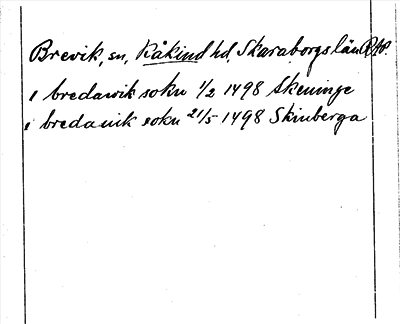 Brevik, sn, Kåkind hd, Skaraborgs län
i bredawik sokn 1/2 1498 Skeninge
i bredauik sokn 21/5 1498 Skinberga